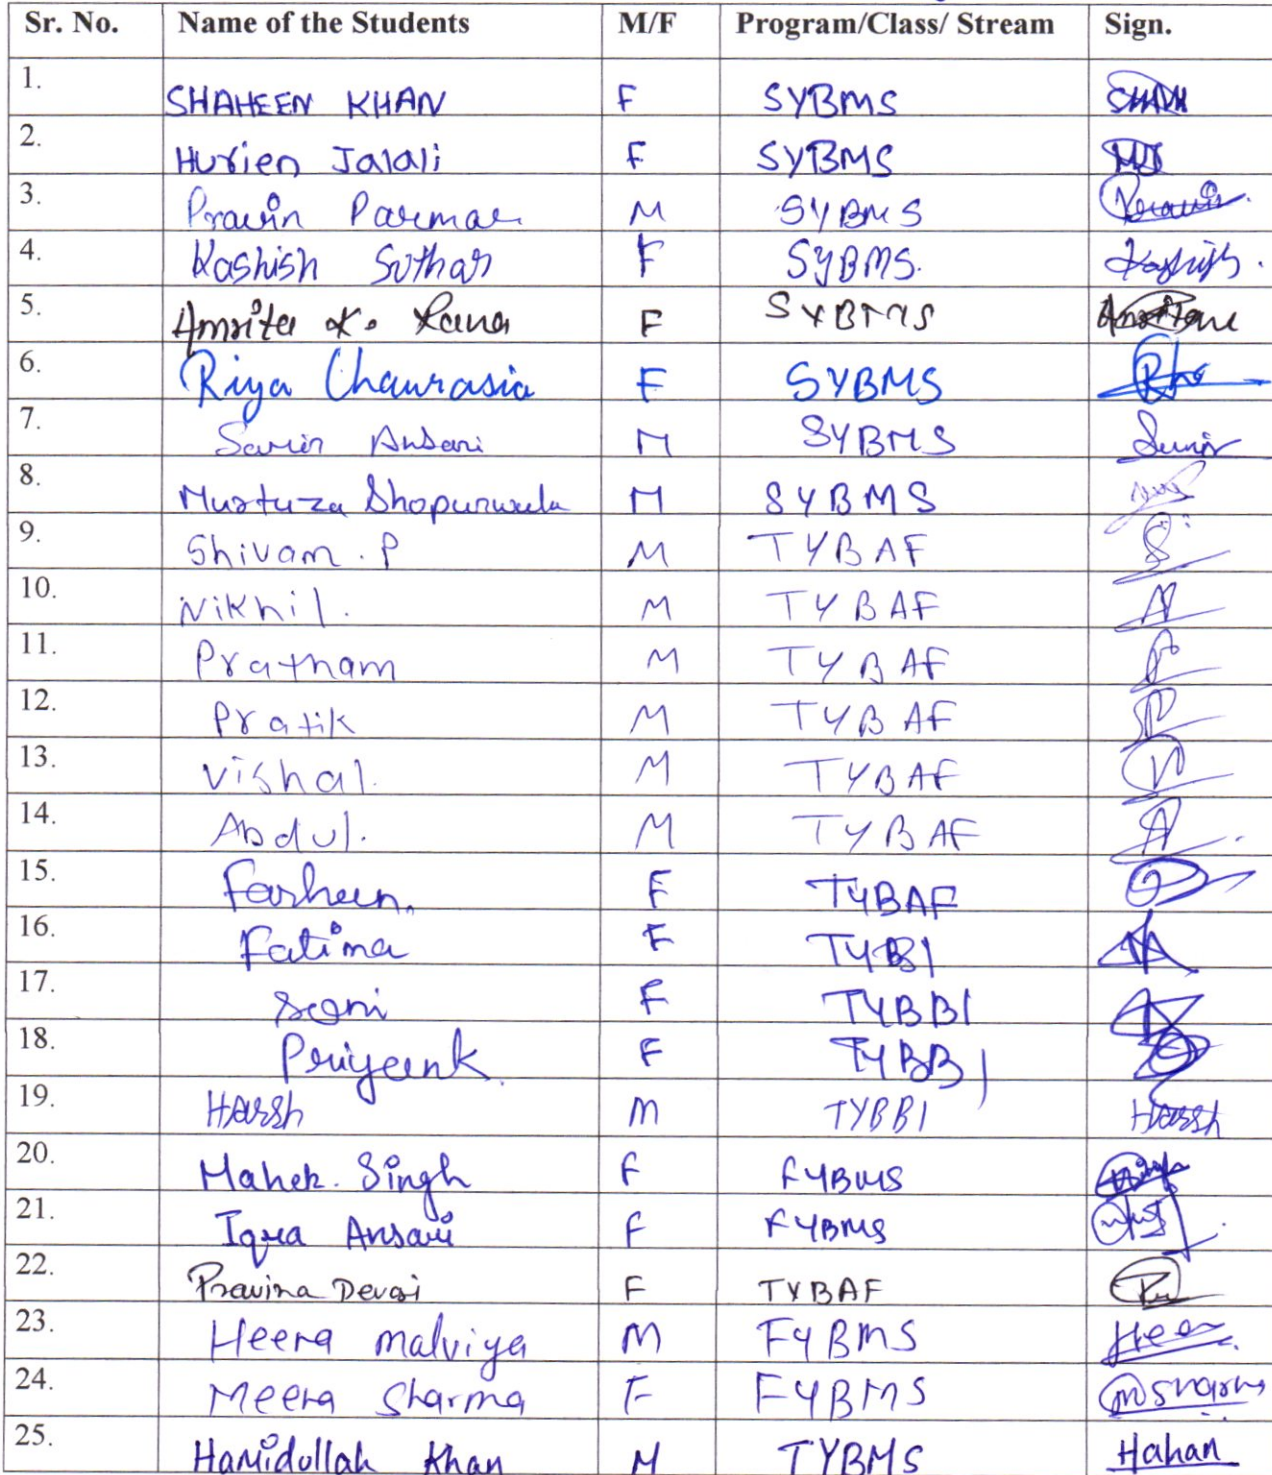 Sr. No. Name of the Students M/F Program/Class/ Stream Sign.
1. SHAHEEN KHAN F SYBMS
2. Hurien Jalali F SYBMS
3. Pravin Parmar M SYBMS Pravin
4. Kashish Suthar F SYBMS. Kashish.
5. Amrita K. Rana F SYBMS
6. Riya Chaurasia F SYBMS
7. Ansari M SYBMS
8. Murtuza Shopurwala M SYBMS
9. Shivam . P M TYBAF
10. Nikhil. M TYBAF
11. Pratham M TYBAF
12. Pratik M TYBAF
13. Vishal. M TYBAF
14. Abdul. M TYBAF
15. Farheen. F TYBAF
16. Fatima F TYBBI
17. Soni F TYBBI
18. F TYBBI
19. Harsh M TYBBI Harsh
20. Mahek. Singh F FYBMS
21. Iqra Ansari F FYBMS
22. Pravina Devasi F TYBAF
23. Heera malviya M FYBMS Heera
24. Meera Sharma F FYBMS msharma
25. Hamidullah Khan M TYBMS Hahan